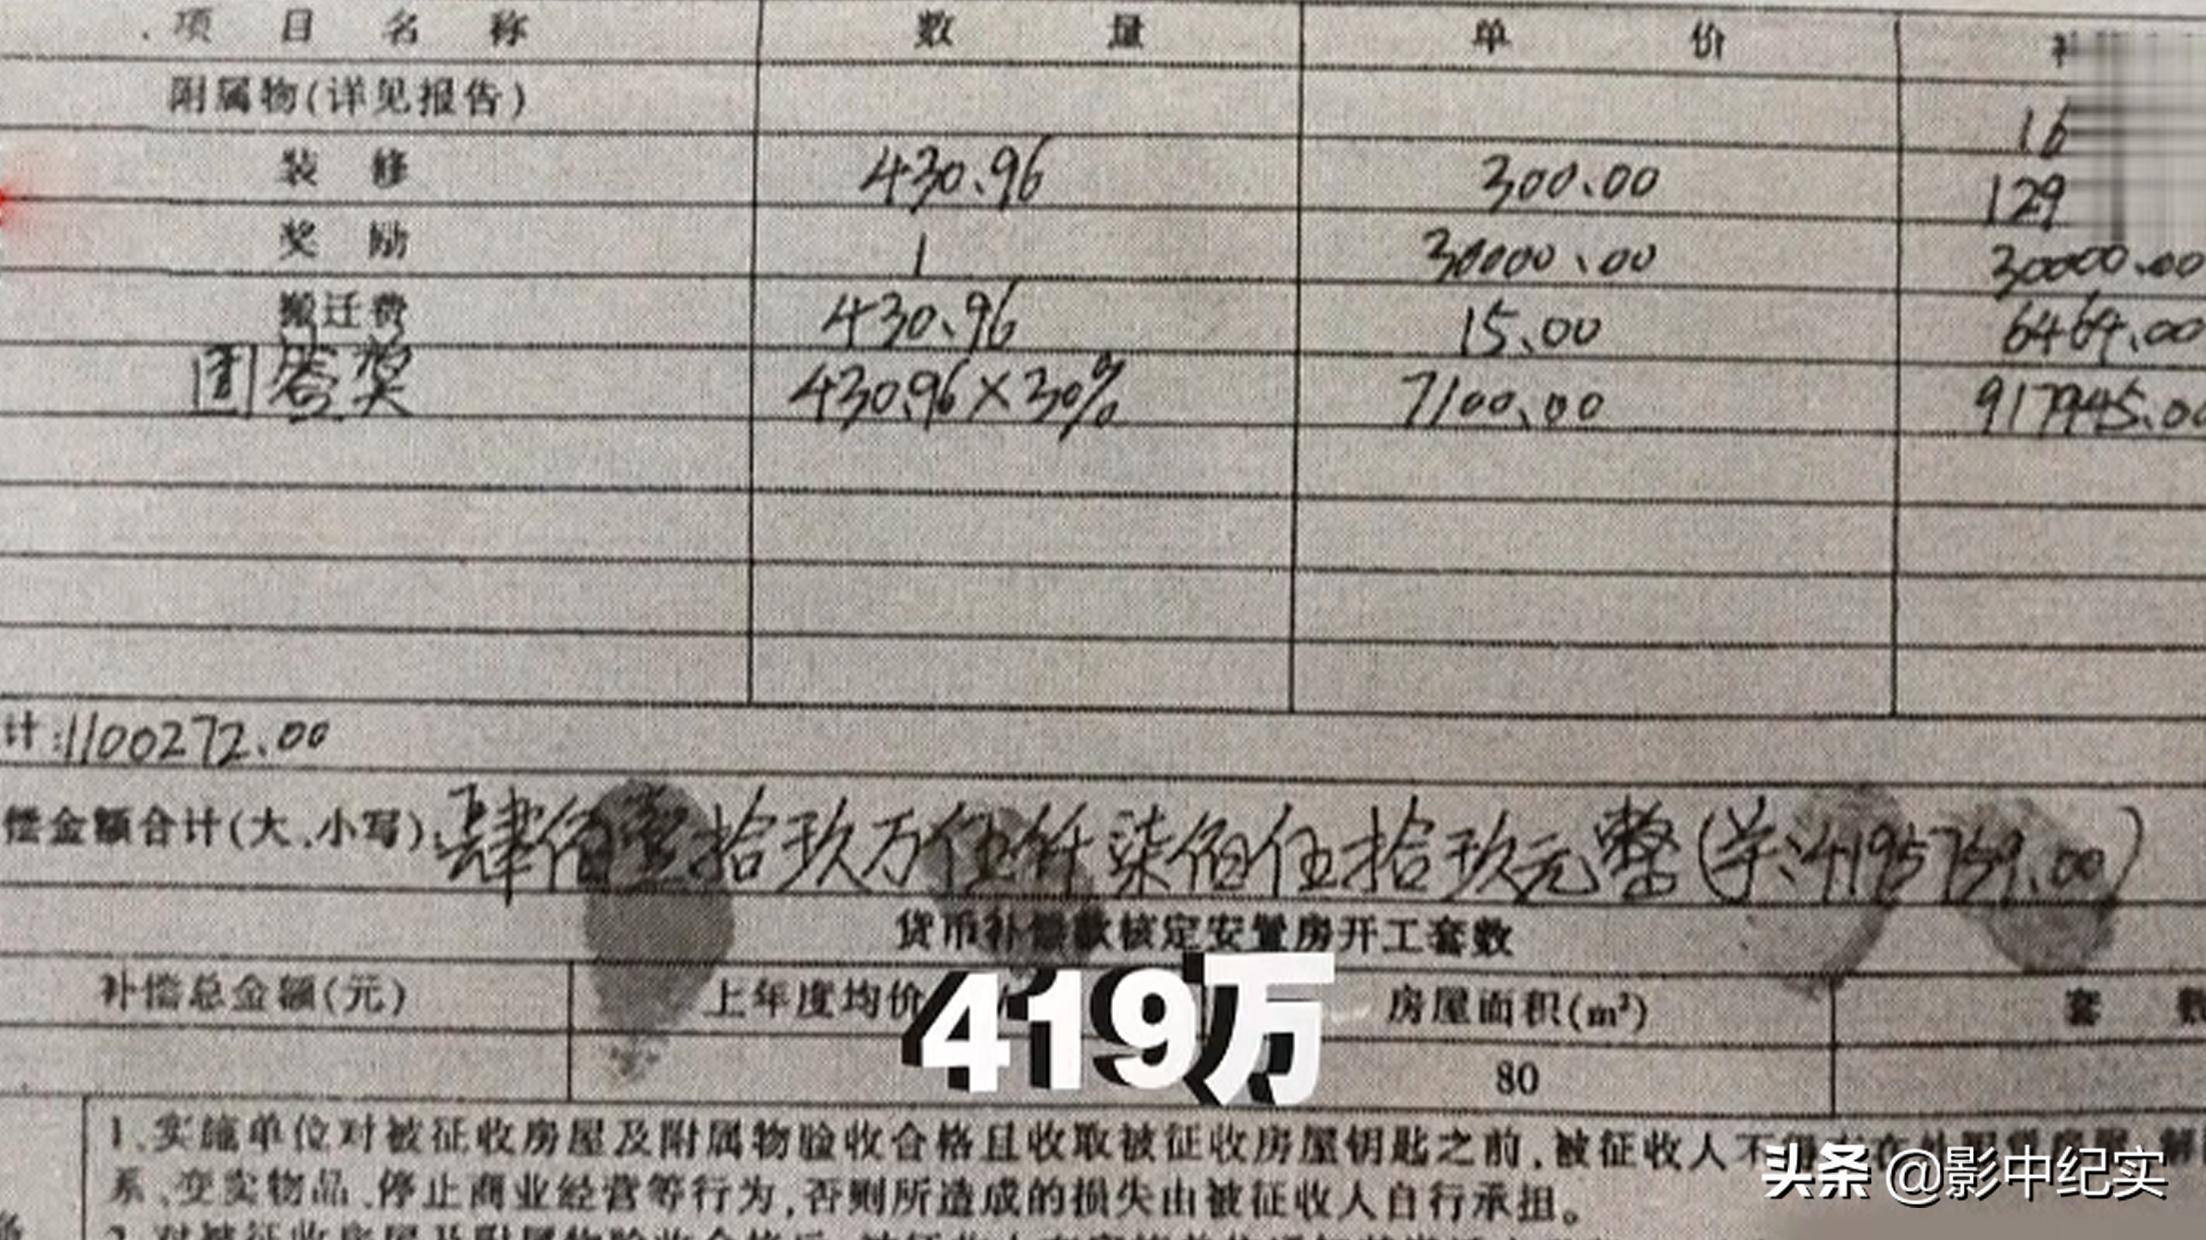 项目名称 数量 单价
附属物(详见报告) 16
装修 430.96 300.00 129
奖励 1 30000.00 30000.00
搬迁费 430.96 15.00 6464.00
团签奖 430.96×30% 7100.00 917945.00
计:1100272.00
偿金额合计(大、小写):肆佰壹拾玖万伍仟柒佰伍拾玖元整(¥:4195759.00)
货币补偿款核定安置房开工套数
补偿总金额(元) 上年度均价 房屋面积(m²) 套
419万
80
1、实施单位对被征收房屋及附属物验收合格且收取被征收房屋钥匙之前,被征收人不
系、变卖物品、停止商业经营等行为,否则所造成的损失由被征收人自行承担。
头条 @影中纪实